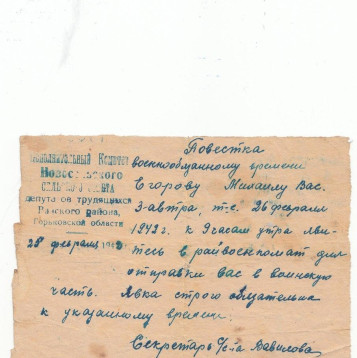 Исполнительный Комитет
Новосельского
сельского совета
депутатов трудящихся
Вачского района,
Горьковской области
28 февраля 1942
Повестка
военнообязанному времени
Егорову Михаилу Вас.
Завтра, т-е. 26 февраля
1942 г. к 9 часам утра яви-
тесь в райвоенкомат для
отправки вас в воинскую
часть. Явка строго обязательна
к указанному времени.
Секретарь с/с-та Вавилова